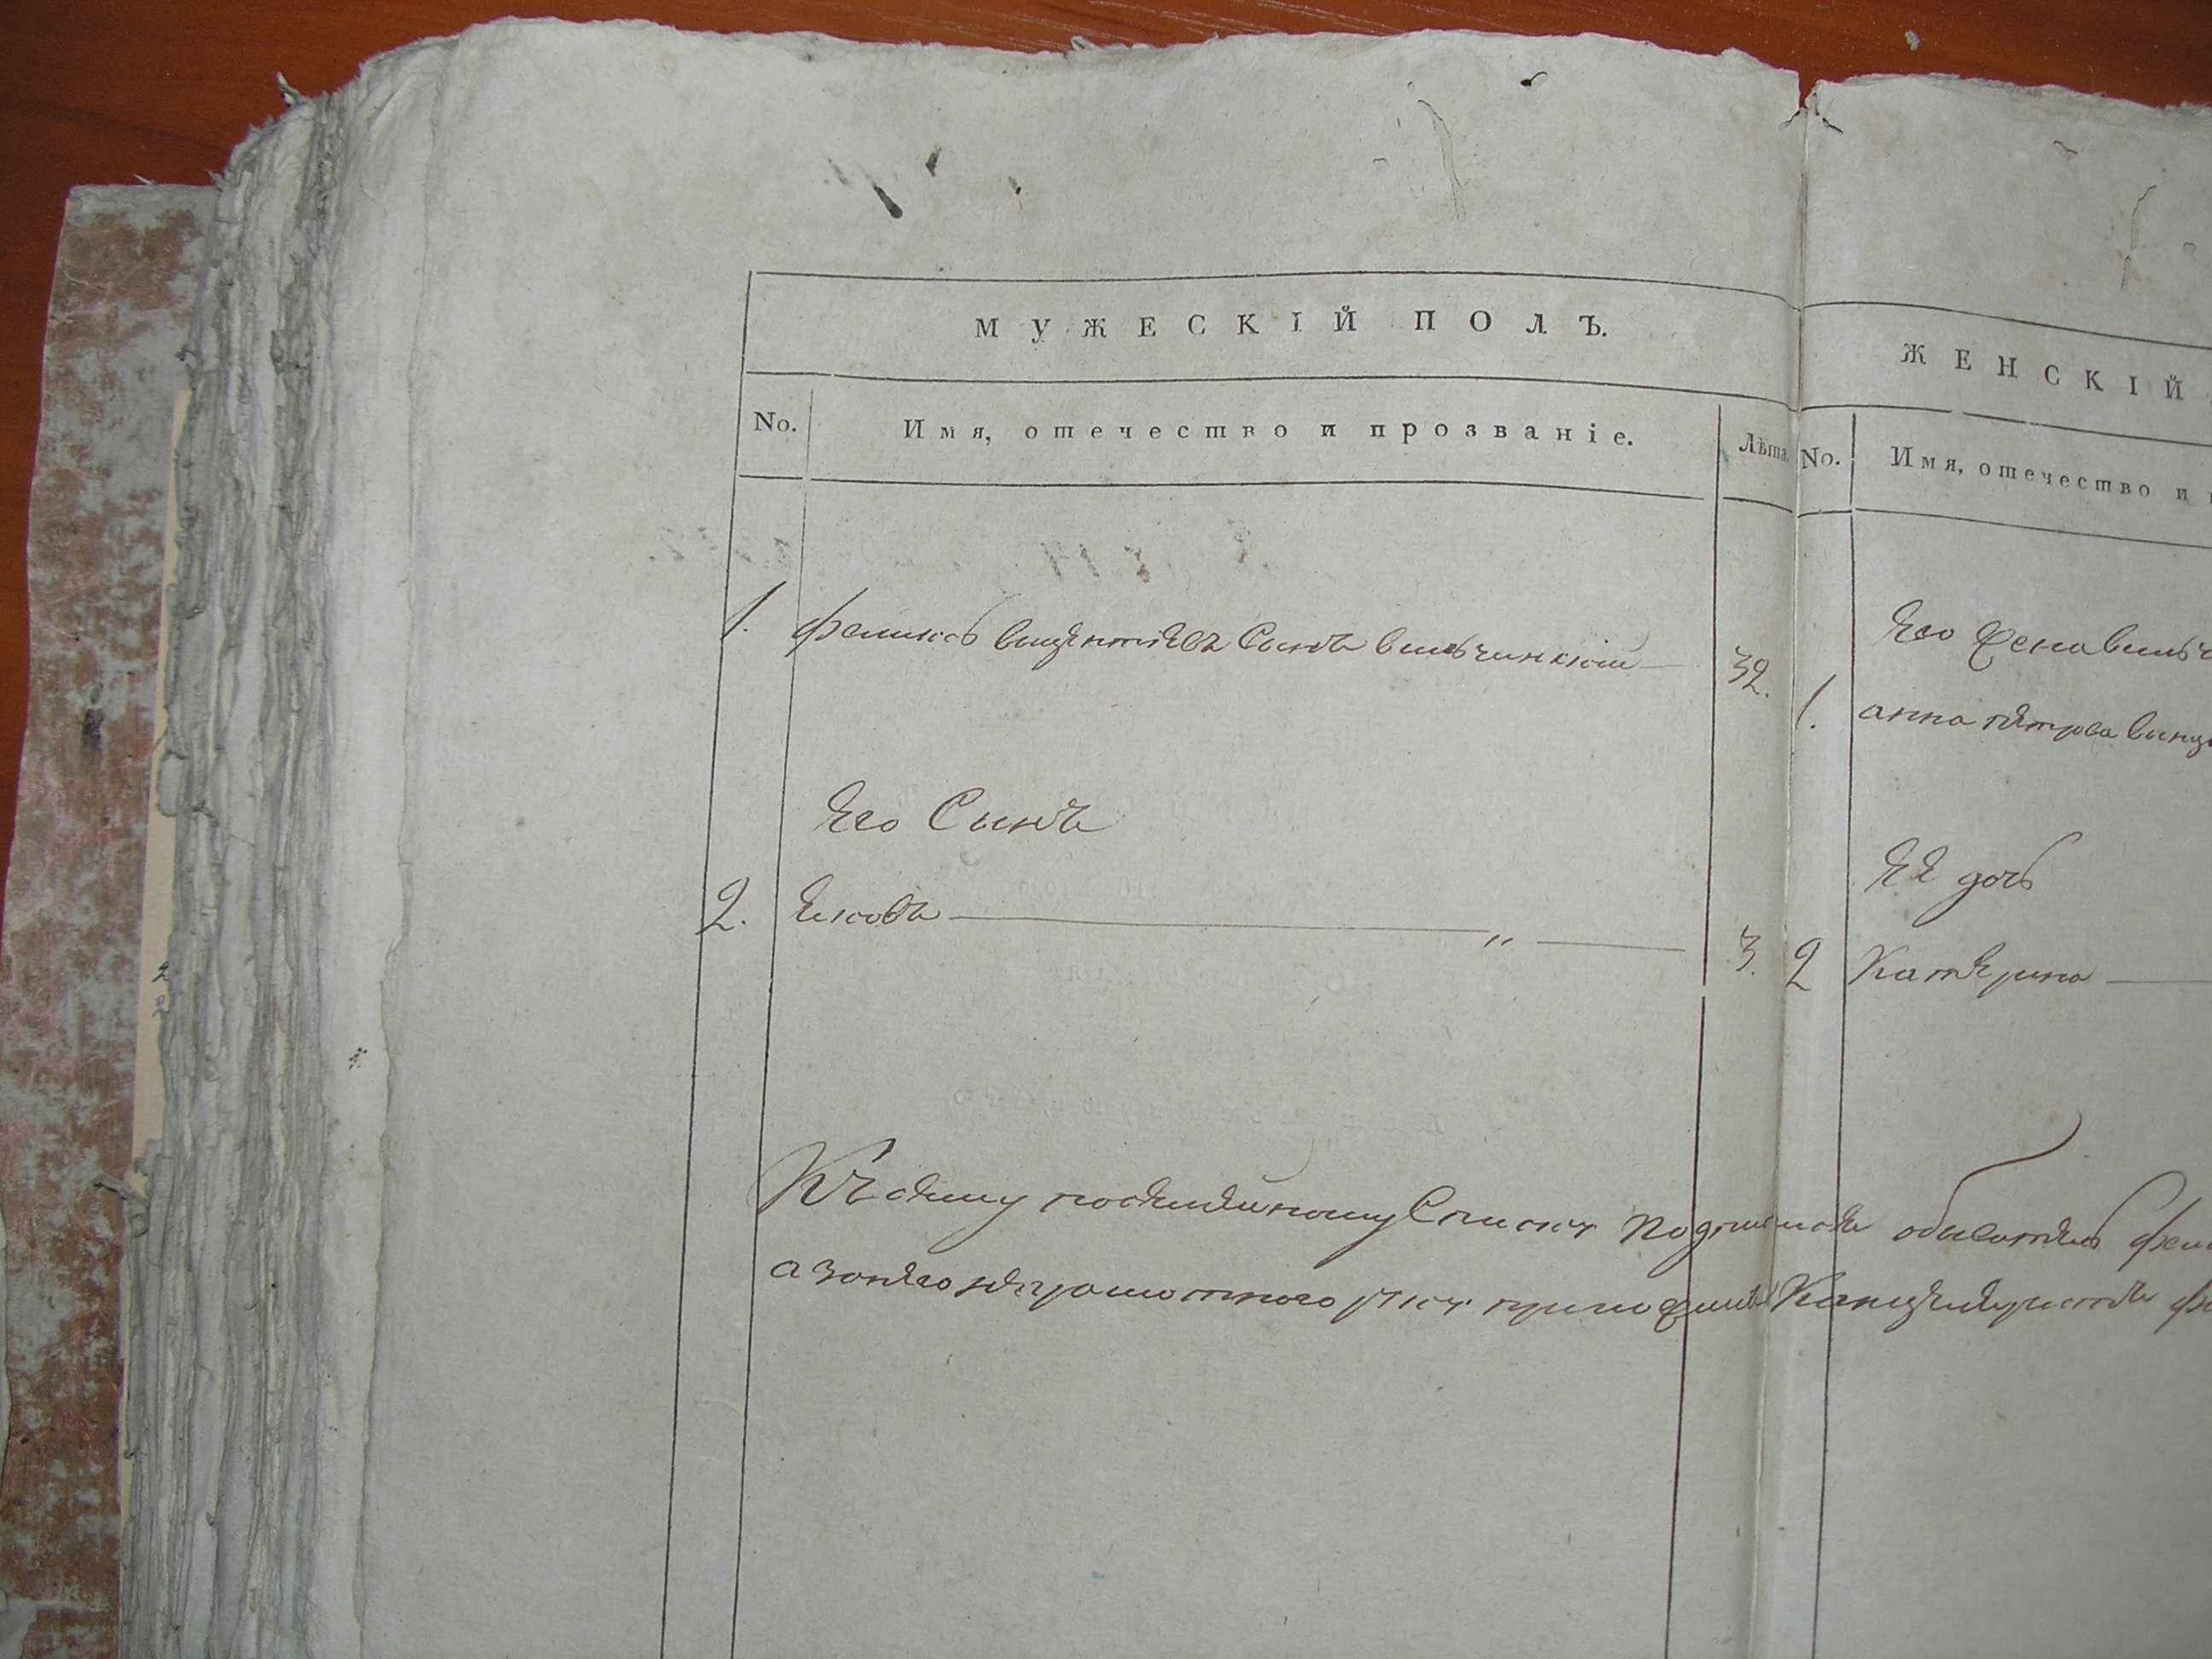 МУЖЕСКІЙ ПОЛЪ.
No. Имя, отечество и прозваніе. Лѣта.
1. Феликсъ вицентіевъ Сынъ вильчинскій 32.
Его Сынъ
2. Яковъ — „ — 3.
ЖЕНСКІЙ
No. Имя, отечество и
Его жена вильч
1. анна петрова
ЕЯ дочь
2 Катерина
Къ сему посемейному Списку подписался обыватель Фели
а за него неграмотного руку приложилъ Канцеляристъ